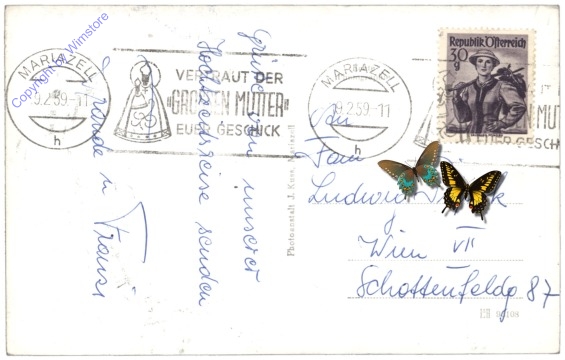 Copyright by Wimstore
MARIAZELL
9.2.59-11
h
VERTRAUT DER
"GROSSEN MUTTER"
EUER GESCHICK
MARIAZELL
9.2.59-11
h
Republik Österreich
30
g
Grüße von unserer
Hochzeitsreise senden
Franzi
Photoanstalt J. Kuss, Mariazell
Frau
Ludwig
Wien VII
Schottenfeldg 87